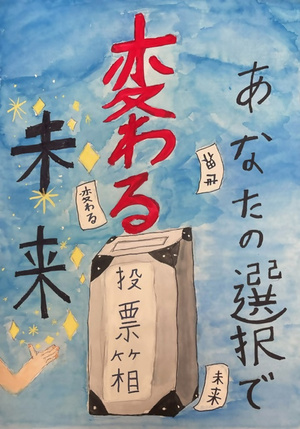 あなたの選択で
変わる
未来
変わる
投票箱
未来